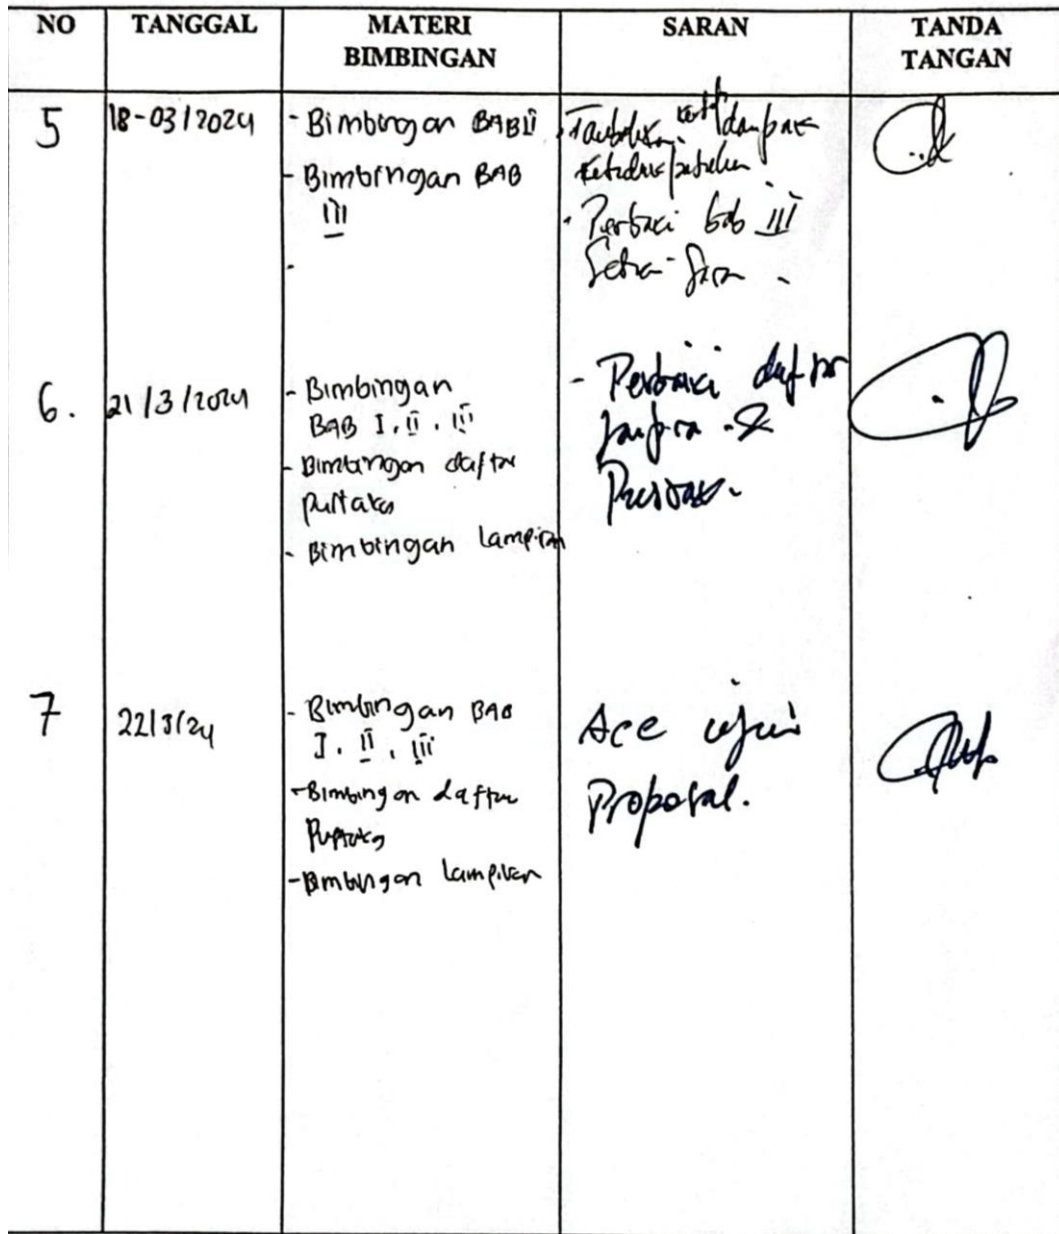 NO TANGGAL MATERI BIMBINGAN SARAN TANDA TANGAN
5 18-03/2024
- Bimbingan BAB II
- Bimbingan BAB
III
-
- Tambahkan dampak
ketidakpatuhan
- Perbaiki bab III
6. 21/3/2024
- Bimbingan
BAB I. II. III
- Bimbingan daftar
pustaka
- Bimbingan lampiran
- Perbaiki daftar
&
Pustaka.
7 22/3/24
- Bimbingan BAB
I. II. III
- Bimbingan daftar
Pustaka
- Bimbingan lampiran
Acc ujian
Proposal.